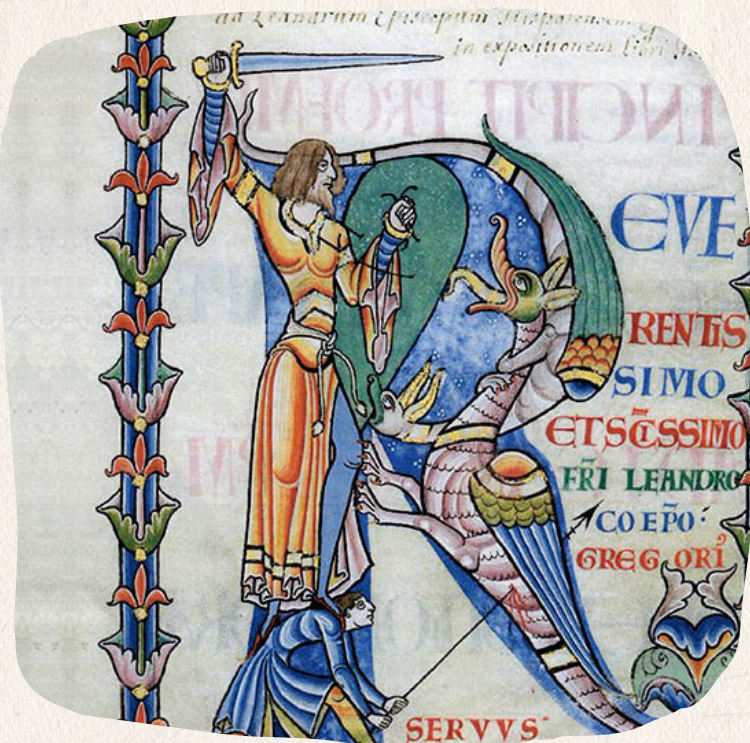 ad Leandrum Episcopum
in expositionem libri
INCIPIT PROEM
EVE
RENTIS
SIMO
ET SC̅ISSIMO
FR̅I LEANDRO
CO EP̅O·
GREGORI᾽
SERVVS·